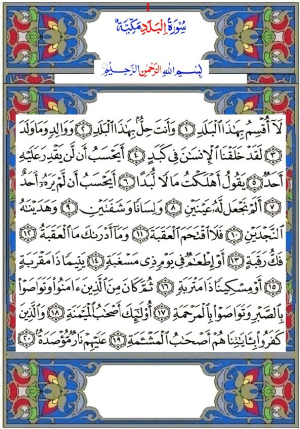 سُورَةُ الْبَلَدِ مَكِّيَّةٌ
بِسْمِ اللَّهِ الرَّحْمَٰنِ الرَّحِيمِ
لَا أُقْسِمُ بِهَٰذَا الْبَلَدِ ﴿١﴾ وَأَنتَ حِلٌّ بِهَٰذَا الْبَلَدِ ﴿٢﴾ وَوَالِدٍ وَمَا وَلَدَ
﴿٣﴾ لَقَدْ خَلَقْنَا الْإِنسَانَ فِي كَبَدٍ ﴿٤﴾ أَيَحْسَبُ أَن لَّن يَقْدِرَ عَلَيْهِ
أَحَدٌ ﴿٥﴾ يَقُولُ أَهْلَكْتُ مَالًا لُّبَدًا ﴿٦﴾ أَيَحْسَبُ أَن لَّمْ يَرَهُ أَحَدٌ
﴿٧﴾ أَلَمْ نَجْعَل لَّهُ عَيْنَيْنِ ﴿٨﴾ وَلِسَانًا وَشَفَتَيْنِ ﴿٩﴾ وَهَدَيْنَاهُ
النَّجْدَيْنِ ﴿١٠﴾ فَلَا اقْتَحَمَ الْعَقَبَةَ ﴿١١﴾ وَمَا أَدْرَاكَ مَا الْعَقَبَةُ ﴿١٢﴾
فَكُّ رَقَبَةٍ ﴿١٣﴾ أَوْ إِطْعَامٌ فِي يَوْمٍ ذِي مَسْغَبَةٍ ﴿١٤﴾ يَتِيمًا ذَا مَقْرَبَةٍ
﴿١٥﴾ أَوْ مِسْكِينًا ذَا مَتْرَبَةٍ ﴿١٦﴾ ثُمَّ كَانَ مِنَ الَّذِينَ آمَنُوا وَتَوَاصَوْا
بِالصَّبْرِ وَتَوَاصَوْا بِالْمَرْحَمَةِ ﴿١٧﴾ أُولَٰئِكَ أَصْحَابُ الْمَيْمَنَةِ ﴿١٨﴾ وَالَّذِينَ
كَفَرُوا بِآيَاتِنَا هُمْ أَصْحَابُ الْمَشْأَمَةِ ﴿١٩﴾ عَلَيْهِمْ نَارٌ مُّؤْصَدَةٌ ﴿٢٠﴾